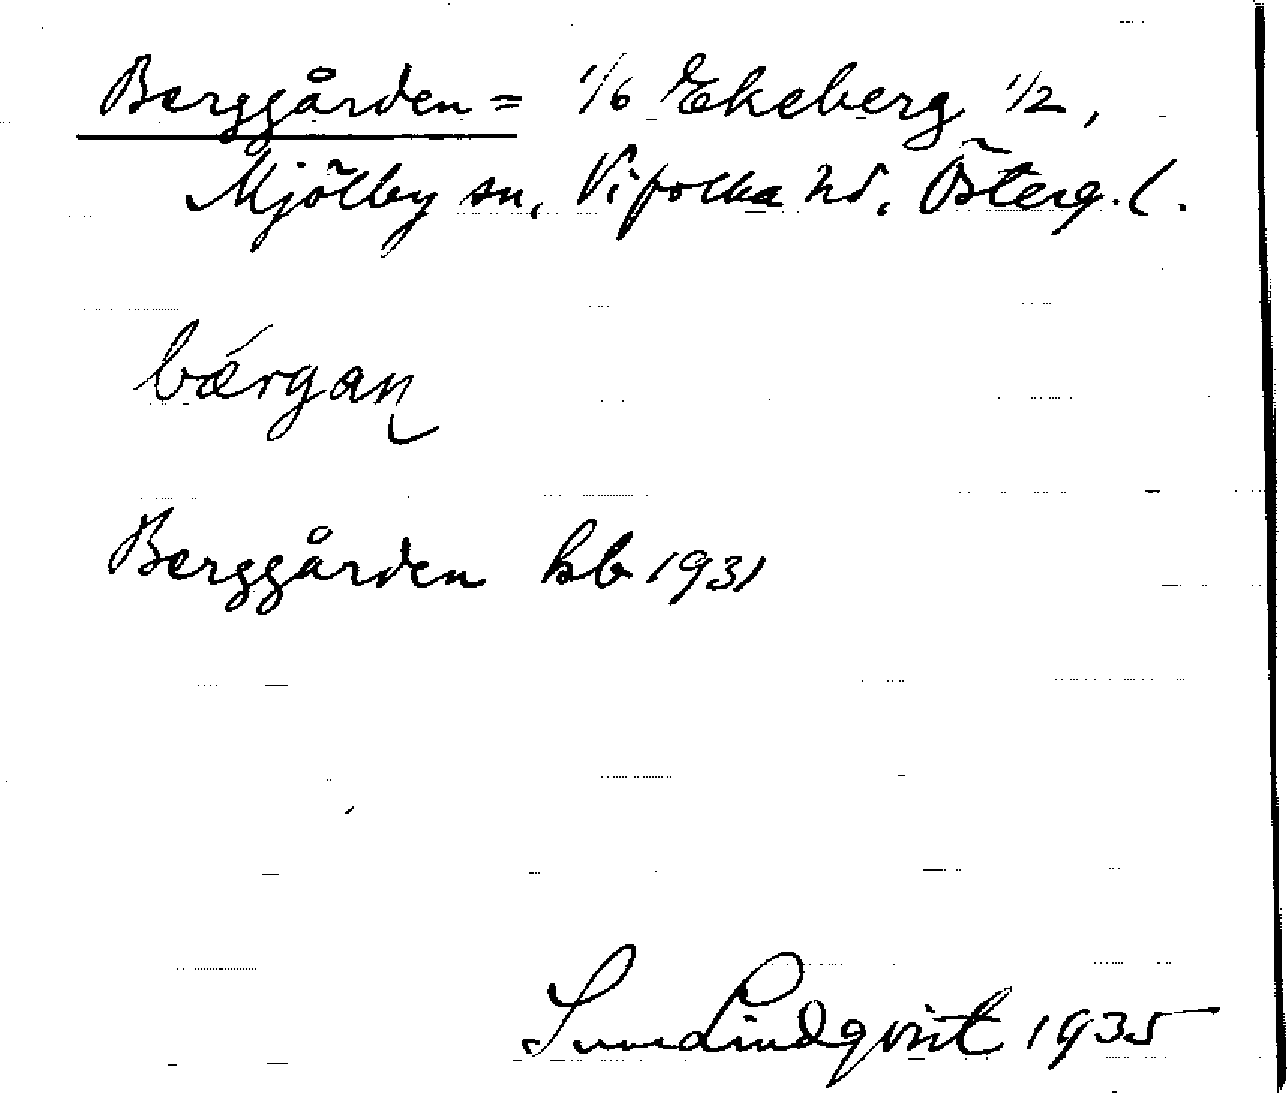 Berggården = 1/6 Ekeberg 1/2,
Mjölby sn, Vifolka hd, Österg. l.
bǽrgaɳ
Berggården hb 1931
Sune Lindqvist 1935